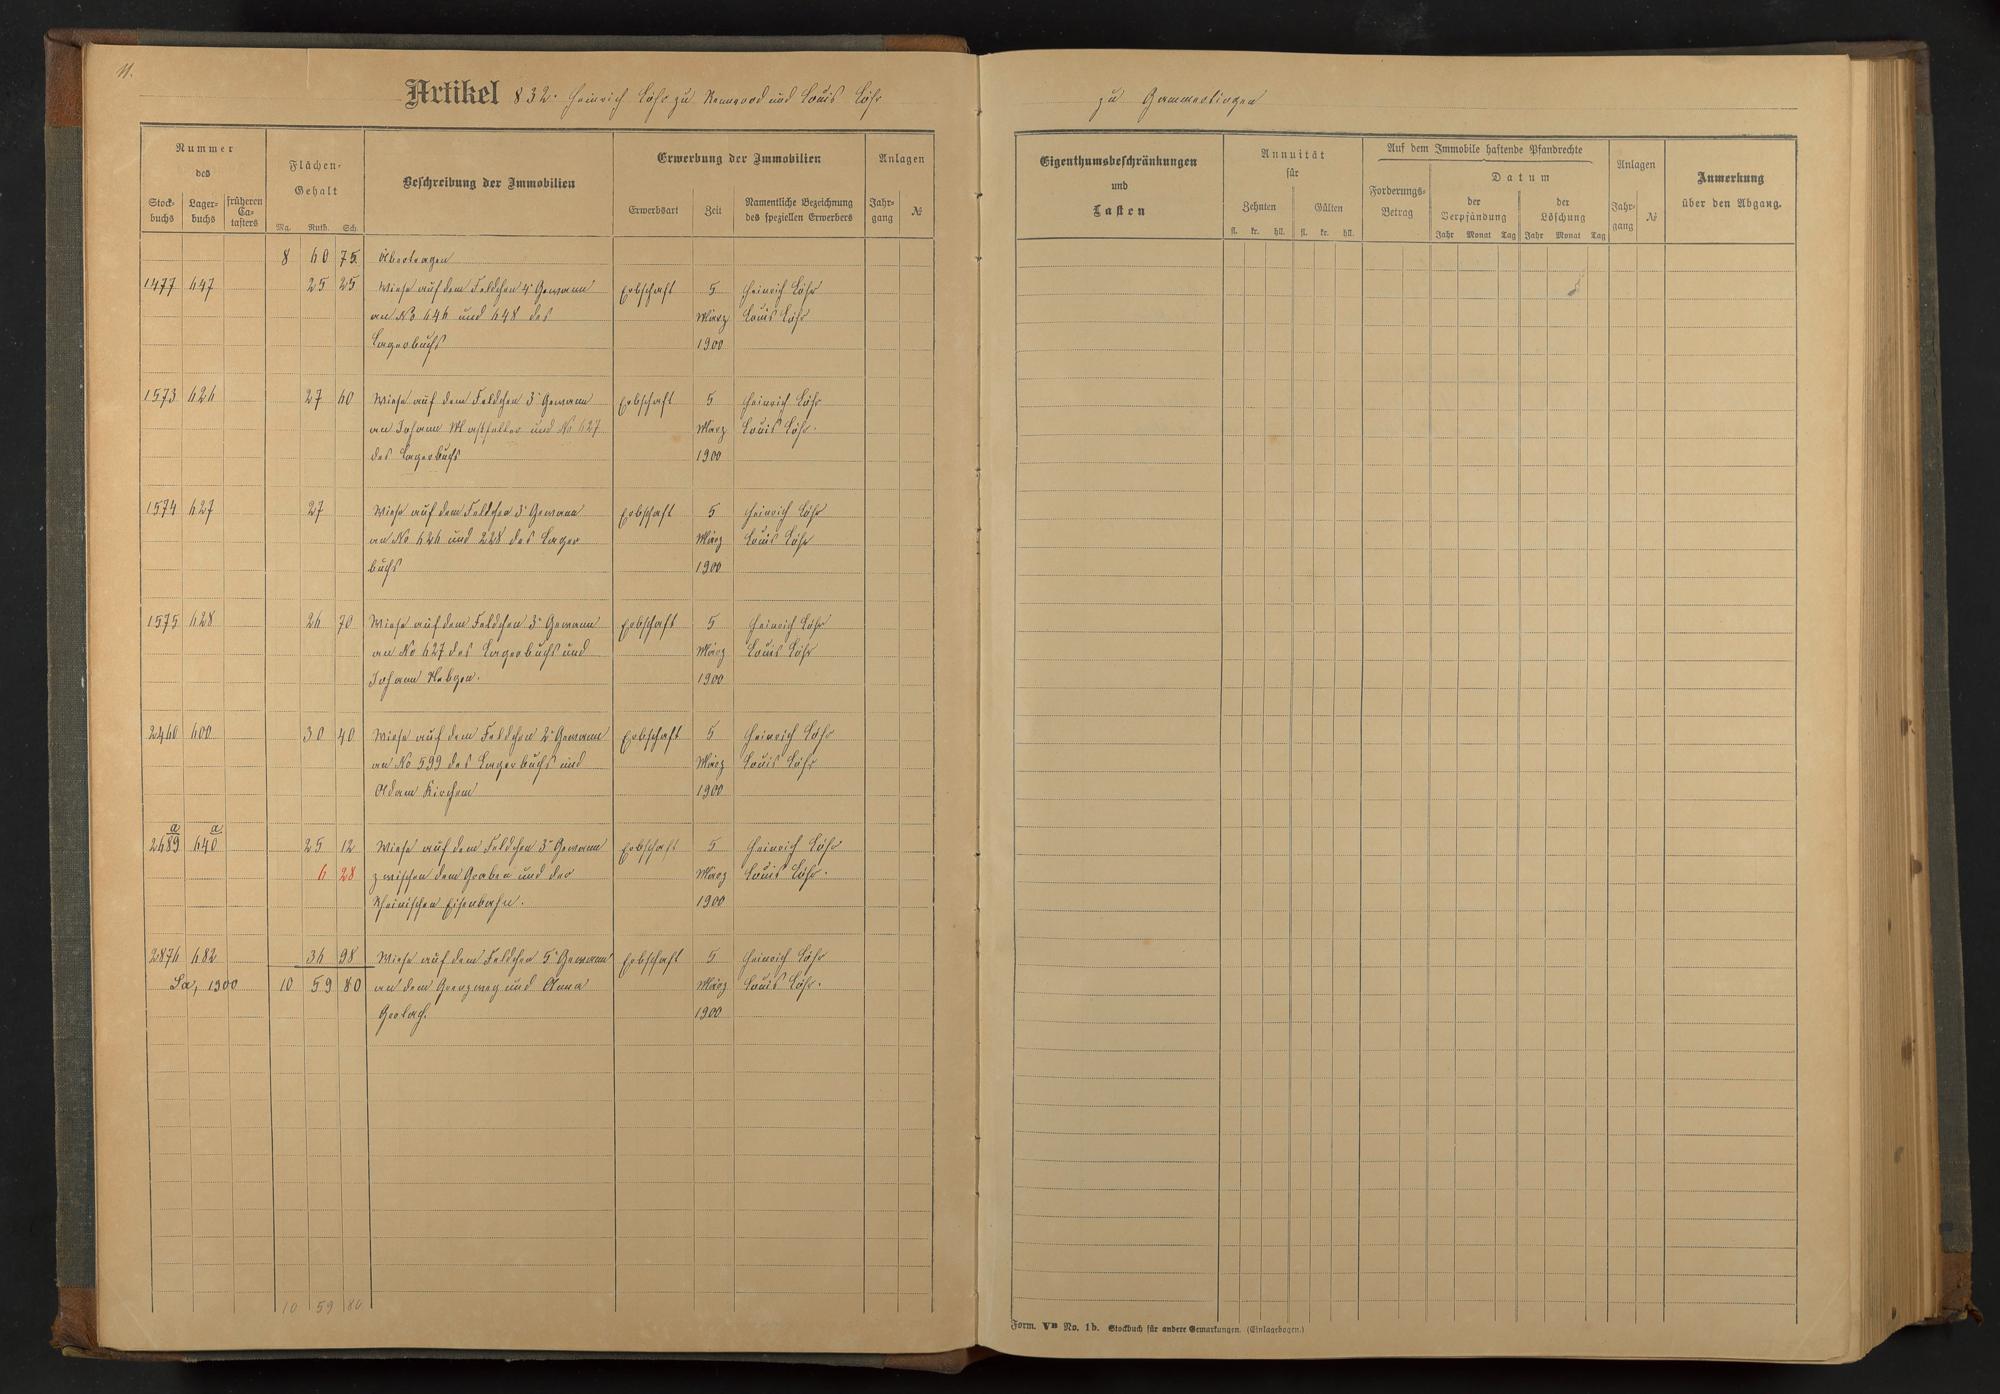 11.
Artikel 832. Heinrich Löhr zu Rennerod und Louis Löhr
zu Gammertingen
Nummer
des
Stock-
buchs
Lager-
buchs
früheren
Ca-
tasters
Flächen-
Gehalt
Mg. Ruth. Sch.
Beschreibung der Immobilien
Erwerbung der Immobilien
Erwerbsart
Zeit
Namentliche Bezeichnung
des speziellen Erwerbers
Anlagen
Jahr-
gang
№
8 60 75 Übertragen
1477 647 25 25 Wiese auf dem Feldchen 4r Gewann Erbschaft 5 Heinrich Löhr
an No 646 und 648 des März Louis Löhr
Lagerbuchs 1900
1573 626 27 60 Wiese auf dem Feldchen 3r Gewann Erbschaft 5 Heinrich Löhr
an Johann Mastfeller und No 627 März Louis Löhr.
des Lagerbuchs 1900
1574 627 27 Wiese auf dem Feldchen 3r Gewann Erbschaft 5 Heinrich Löhr
an No 626 und 228 des Lager März Louis Löhr
buchs 1900
1575 628 26 70 Wiese auf dem Feldchen 3r Gewann Erbschaft 5 Heinrich Löhr
an No 627 des Lagerbuchs und März Louis Löhr
Johann Hebgen. 1900
2460 600 30 40 Wiese auf dem Feldchen 2r Gewann Erbschaft 5 Heinrich Löhr
an No 599 des Lagerbuchs und März Louis Löhr
Adam Kirchem 1900
a a
2689 640 25 12 Wiese auf dem Feldchen 3r Gewann Erbschaft 5 Heinrich Löhr
6 28 zwischen dem Graben und der März Louis Löhr.
Rheinischen Eisenbahn. 1900
2876 682 36 98 Wiese auf dem Feldchen 5r Gewann Erbschaft 5 Heinrich Löhr
Sa, 1900 10 59 80 an dem Grenzweg und Anna März Louis Löhr.
Gerlach. 1900
10 59 80
Eigenthumsbeschränkungen
und
Lasten
Annuität
für
Zehnten
Gülten
fl. kr. hll. fl. kr. hll.
Auf dem Immobile haftende Pfandrechte
Forderungs-
Betrag
Datum
der
Verpfändung
der
Löschung
Jahr Monat Tag Jahr Monat Tag
Anlagen
Jahr-
gang
№
Anmerkung
über den Abgang.
Form. VB No. 1b. Stockbuch für andere Gemarkungen. (Einlagebogen.)